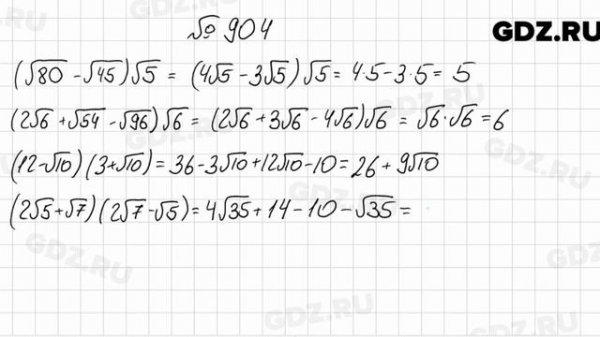 № 904
GDZ.RU
(√80 - √45)√5 = (4√5 - 3√5)√5 = 4·5 - 3·5 = 5
(2√6 + √54 - √96)√6 = (2√6 + 3√6 - 4√6)√6 = √6·√6 = 6
(12-√10)(3+√10) = 36 - 3√10 + 12√10 - 10 = 26 + 9√10
(2√5+√7)(2√7-√5) = 4√35 + 14 - 10 - √35 =